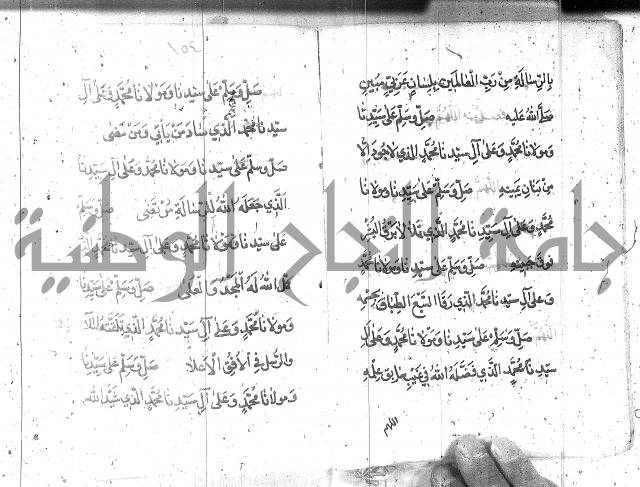 بالرسالة من رب العالمين بلسان عربي مبين
صلى الله عليه اللهم صل وسلم على سيدنا
ومولانا محمد وعلى آل سيدنا محمد الذي
من بنان يمينه اللهم صل وسلم على سيدنا ومولانا
محمد وعلى آل سيدنا محمد الذي
فوق جبينه صل وسلم على سيدنا ومولانا محمد
وعلى آل سيدنا محمد الذي رقا السبع الطباق بجسمه
اللهم صل وسلم على سيدنا ومولانا محمد وعلى آل
سيدنا محمد الذي فضله الله في غيب سابق علمه
اللهم
١٥٤
صل وسلم على سيدنا ومولانا محمد وعلى آل
سيدنا محمد الذي ساد من يأتي ومن مضى
صل وسلم على سيدنا ومولانا محمد وعلى آل سيدنا
الذي جعله الله للرسالة صل وسلم
على سيدنا ومولانا محمد وعلى آل سيدنا محمد الذي
الله له المجد والمعلى صل وسلم على سيدنا
ومولانا محمد وعلى آل سيدنا محمد الذي
والرسل في الأفق الاعلا صل وسلم على سيدنا
ومولانا محمد وعلى آل سيدنا محمد الذي الله
جامعة النجاح الوطنية